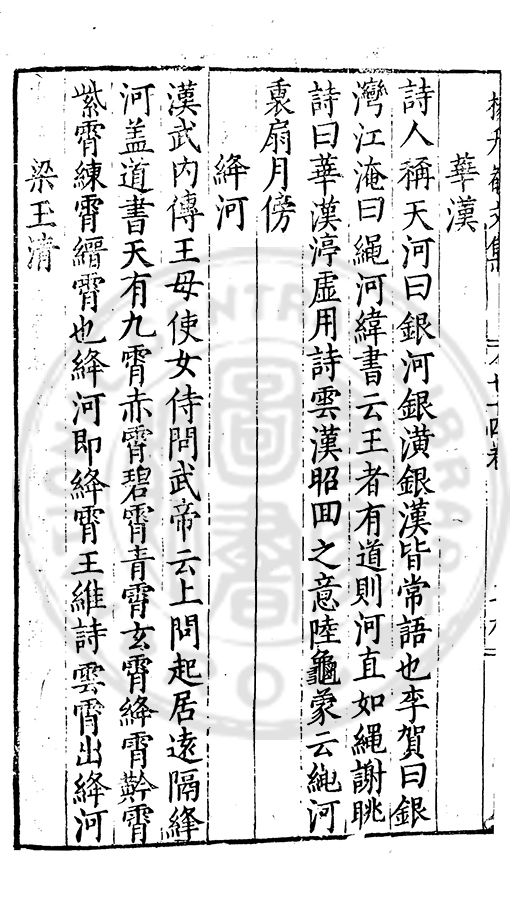 楊升菴文集 七十四卷
華漢
詩人稱天河曰銀河銀潢銀漢皆常語也李賀曰銀
灣江淹曰繩河緯書云王者有道則河直如繩謝朓
詩曰華漢渟虛用詩雲漢昭囬之意陸龜蒙云河
扇月傍
絳河
漢武內傳王母使女侍問武帝云上問起居逺隔絳
河盖道書天有九霄赤霄碧霄青霄玄霄絳霄黅霄
紫霄練霄縉霄也絳河即絳霄王維詩雲霄出絳河
梁玉清